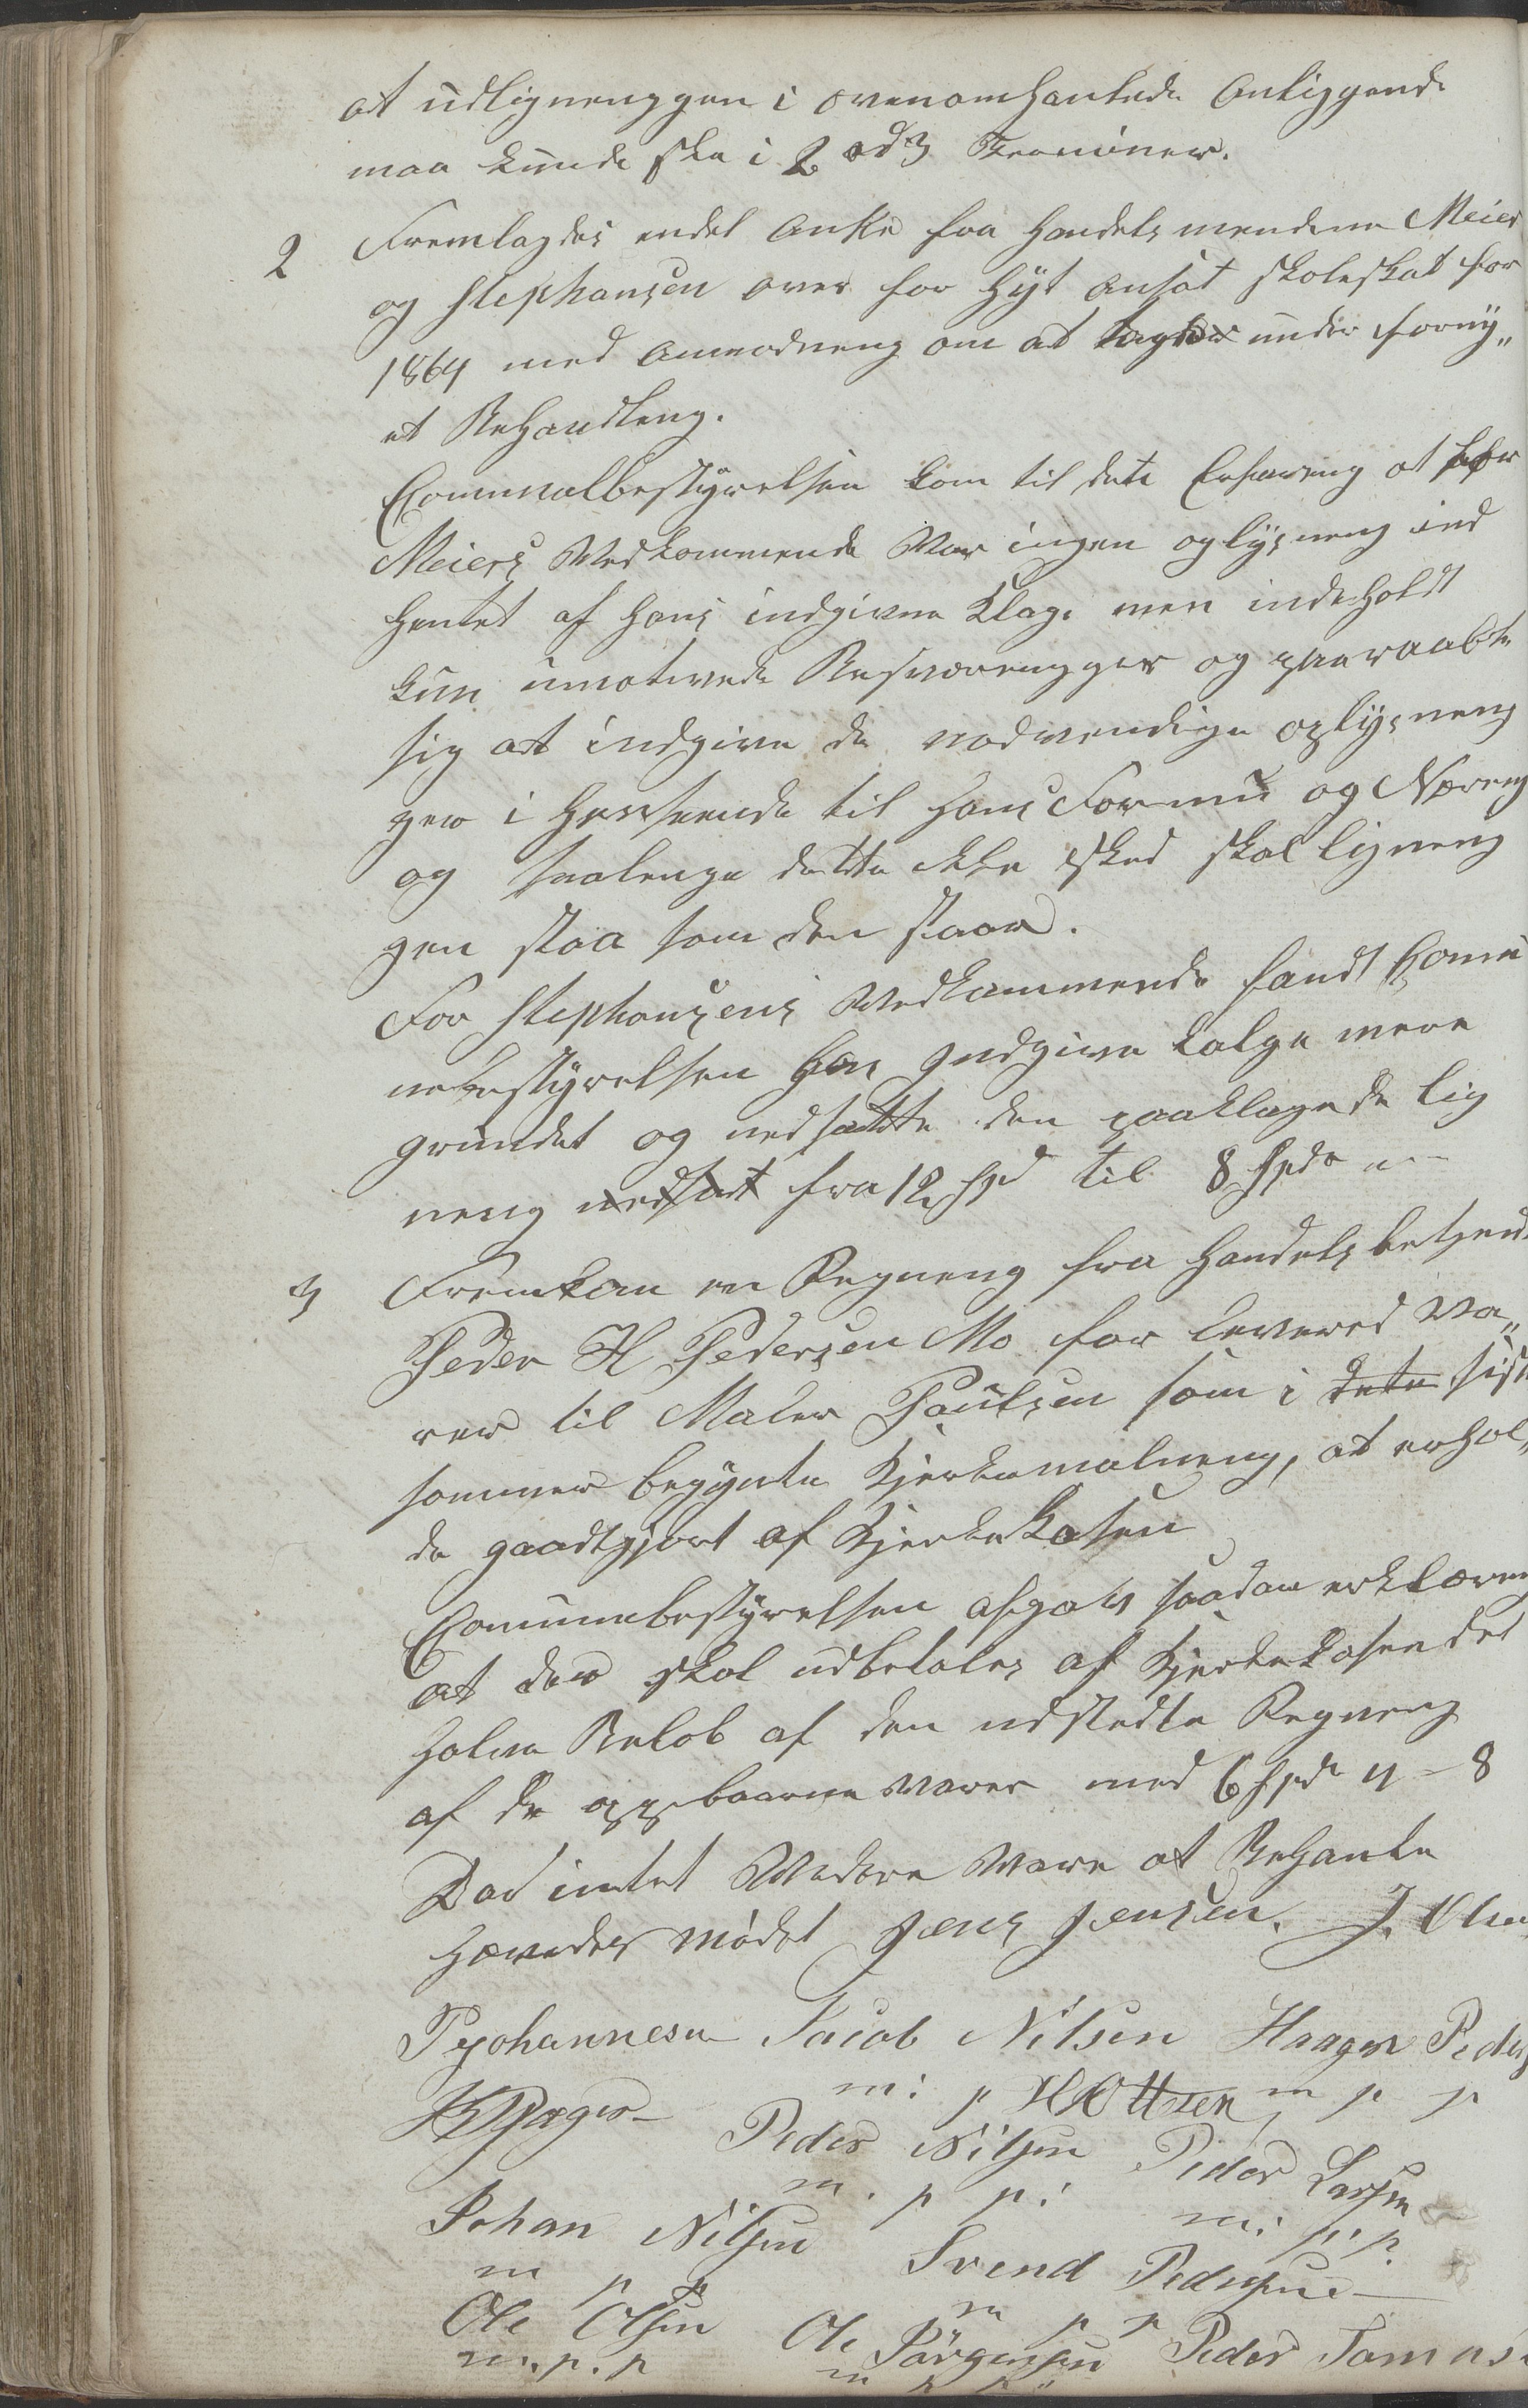 at udligningen i ovenomhantlede Anliggende
maa kunde ske i 2 od 3 Terminer.
2 Fremlagdes endel Anke fra Handelsmendene Meier
og Stephansen over for Høyt ansat skoleskat for
1864 med Anmodneng om at tages under forny„
et Behandleng.
Communalbestyrelsen kom til dete Erfareng at for
Meiers Vedkommende var ingen oplysneng ind
hentet af hans indgivne Klage men indeholdt
kun umotivede Besværengger og paaraabte
sig at indgive de nødvendige oplysneng
ger i Henseende til hans Formue og Næreng
og saalenge dette ikke sked skal ligneng
gen staa som den staar.
For Stephansens Vedkommende fandt Comu
nebestyrelsen hans Indgivne kalge mere
grundet og nedsatte den paaklagede lig
neng nedsat fra 12 Spd til 8 Spd
3 Fremkom en Regneng fra Handelsbetjent
Peder H Pedersen Mo for levered Va„
rer til Maler Poulsen som i dette sist
sommer begynte Kjerkemalneng, at erhol„
de gaadtgjort af Kjerkekasen
Comunebestyrelsen afgav saadan erklæreng
at der skal udbetales af Kjerkekasen det
halve Beløb af den udstedte Regneng
af de oppebaarne varer med 6 Spd 4 - 8
Da intet Videre Være at Behante
Hævedes mødet Jens Jensen. J. Olsen
P Johannesen Jacob Nilsen Haagen Peders
m: p HOttsen m p p
Peder Nilsen Peder Larsen
m. p p: m: p. p.
Johan Nilsen Svend Pedersen
m p p m p p
Ole Olsen Ole Jørgensen Peder Tomas
m. p. p m p p